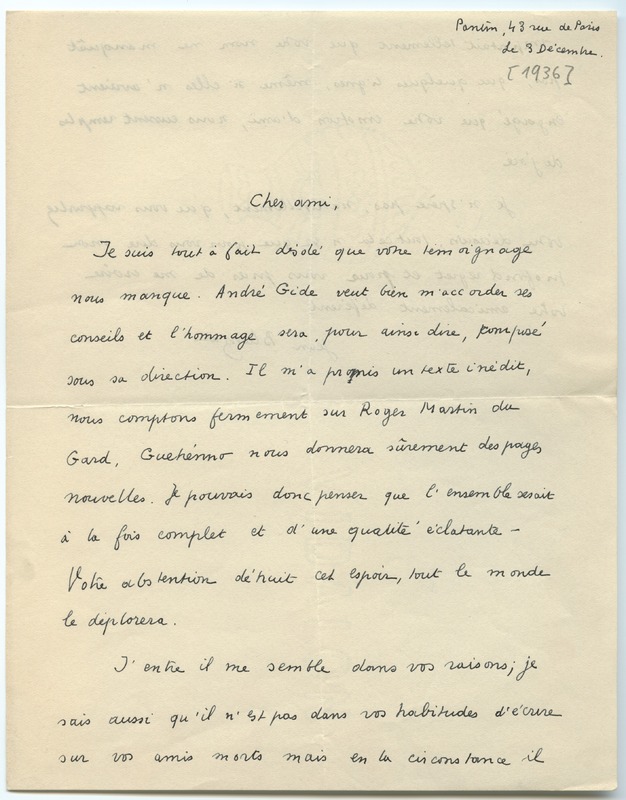 Pantin, 43 rue de Paris
Le 3 Décembre.
[1936]
Cher ami,
Je suis tout à fait désolé que votre temoignage
nous manque. André Gide veut bien m'accorder ses
conseils et l'hommage sera, pour ainsi dire, composé
sous sa direction. Il m'a promis un texte inédit,
nous comptons fermement sur Roger Martin du
Gard, Guehénno nous donnera sûrement des pages
nouvelles. Je pouvais donc penser que l'ensemble serait
à la fois complet et d'une qualité éclatante —
Votre abstention détruit cet espoir, tout le monde
le déplorera.
J'entre il me semble dans vos raisons; je
sais aussi qu'il n'est pas dans vos habitudes d'écrire
sur vos amis morts mais en la circonstance il